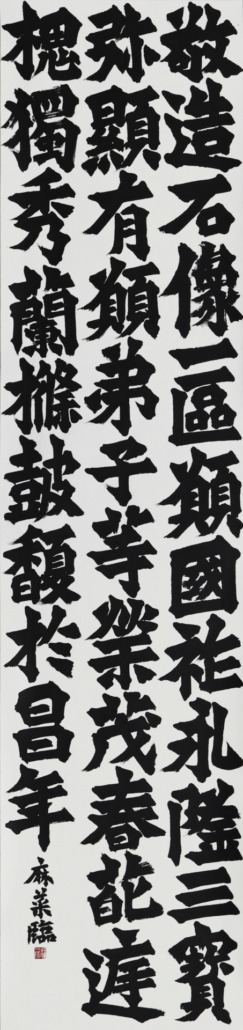 敬造石像一區願國祚永隆三寶
弥顯有願弟子等榮茂春葩遟
槐獨秀蘭條鼓馥於昌年
麻菜臨